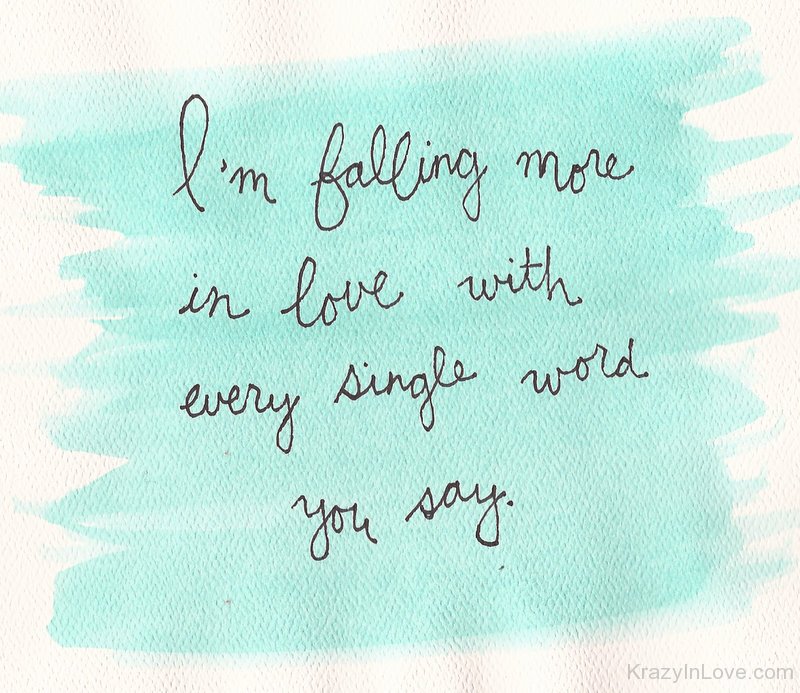 I'm falling more
in love with
every single word
you say.
KrazyInLove.com